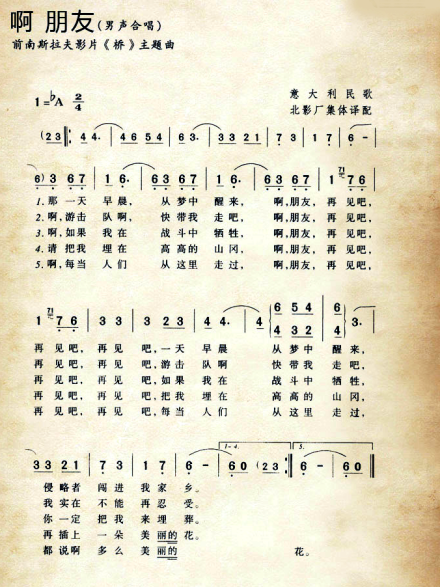 啊 朋友(男声合唱)
前南斯拉夫影片《桥》主题曲
意大利民歌
1=♭A 2/4
北影厂集体译配
(23 44. 46 54 63. 33 21 73 17 6 -
6)3 67 16. 63 67 16. 63 67 1 76
1.那一天 早晨, 从梦中 醒来, 啊,朋友, 再见吧,
2.啊,游击 队啊, 快带我 走吧, 啊,朋友, 再见吧,
3.啊,如果 我在 战斗中 牺牲, 啊,朋友, 再见吧,
4.请把我 埋在 高高的 山冈, 啊,朋友, 再见吧,
5.啊,每当 人们 从这里 走过, 啊,朋友, 再见吧,
6 54 6
1 76 33 32 34 4. 4 4 32 4 3.
再见吧,再见 吧,一天 早晨 从梦中 醒来,
再见吧,再见 吧,游击 队啊 快带我 走吧,
再见吧,再见 吧,如果 我在 战斗中 牺牲,
再见吧,再见 吧,把我 埋在 高高的 山冈,
再见吧,再见 吧,每当 人们 从这里 走过,
1-4. 5.
33 21 73 17 6 - 60 (23 6 - 60
侵略者 闯进我家 乡。
我实在 不能再忍 受。
你一定 把我来埋 葬。
再插上 一朵 美丽的 花。
都说啊 多么 美丽的 花。